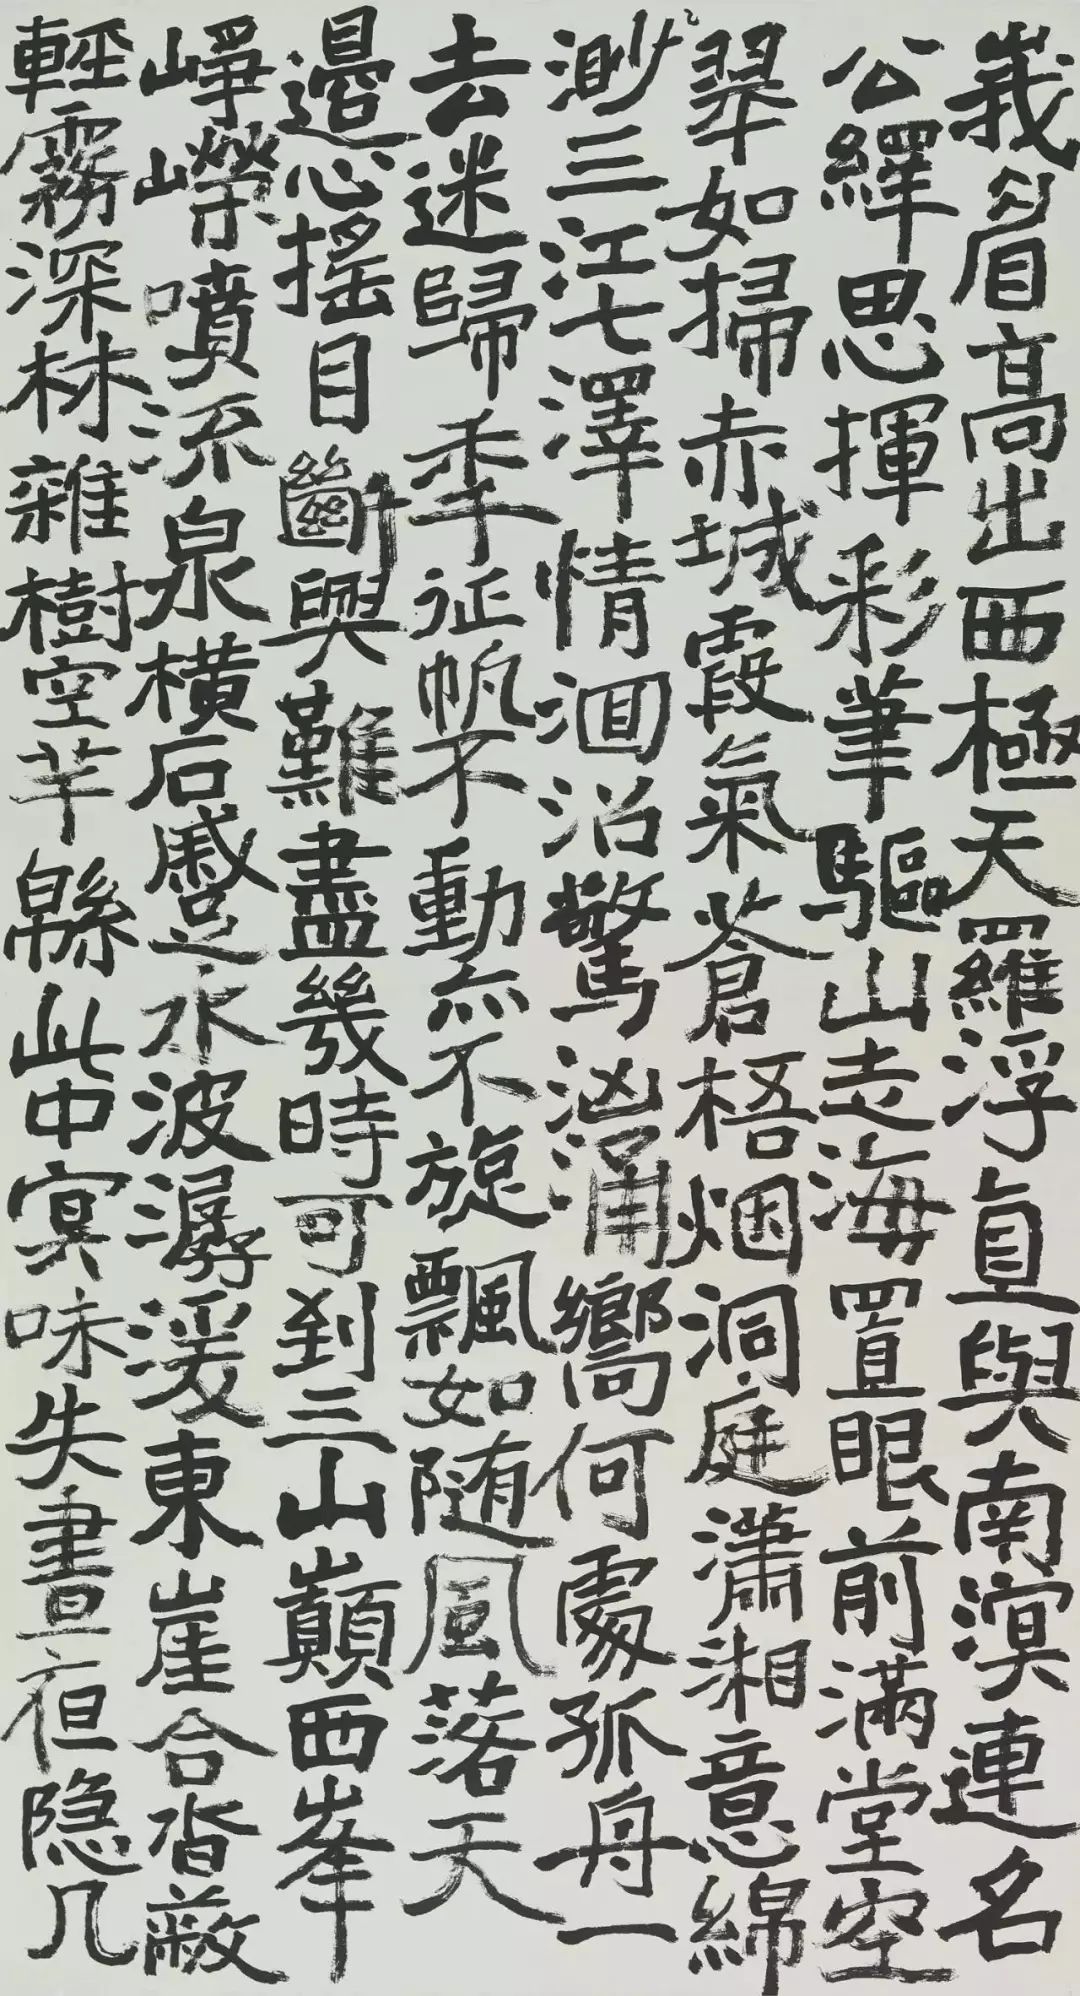 峩眉高出西極天羅浮直與南溟連名
公繹思揮彩筆驅山走海置眼前滿堂空
翠如掃赤城霞氣蒼梧烟洞庭瀟湘意綿
渺三江七澤情洄沿驚洶涌嚮何處孤舟一
去迷歸秊征帆不動亦不旋飄如随風落天
邊心搖目斷興難盡幾時可到三山巔西峯
崢嶸噴流泉橫石蹙水波潺湲東崖合沓蔽
輕霧深林雜樹空芊緜此中冥昧失晝夜隐几